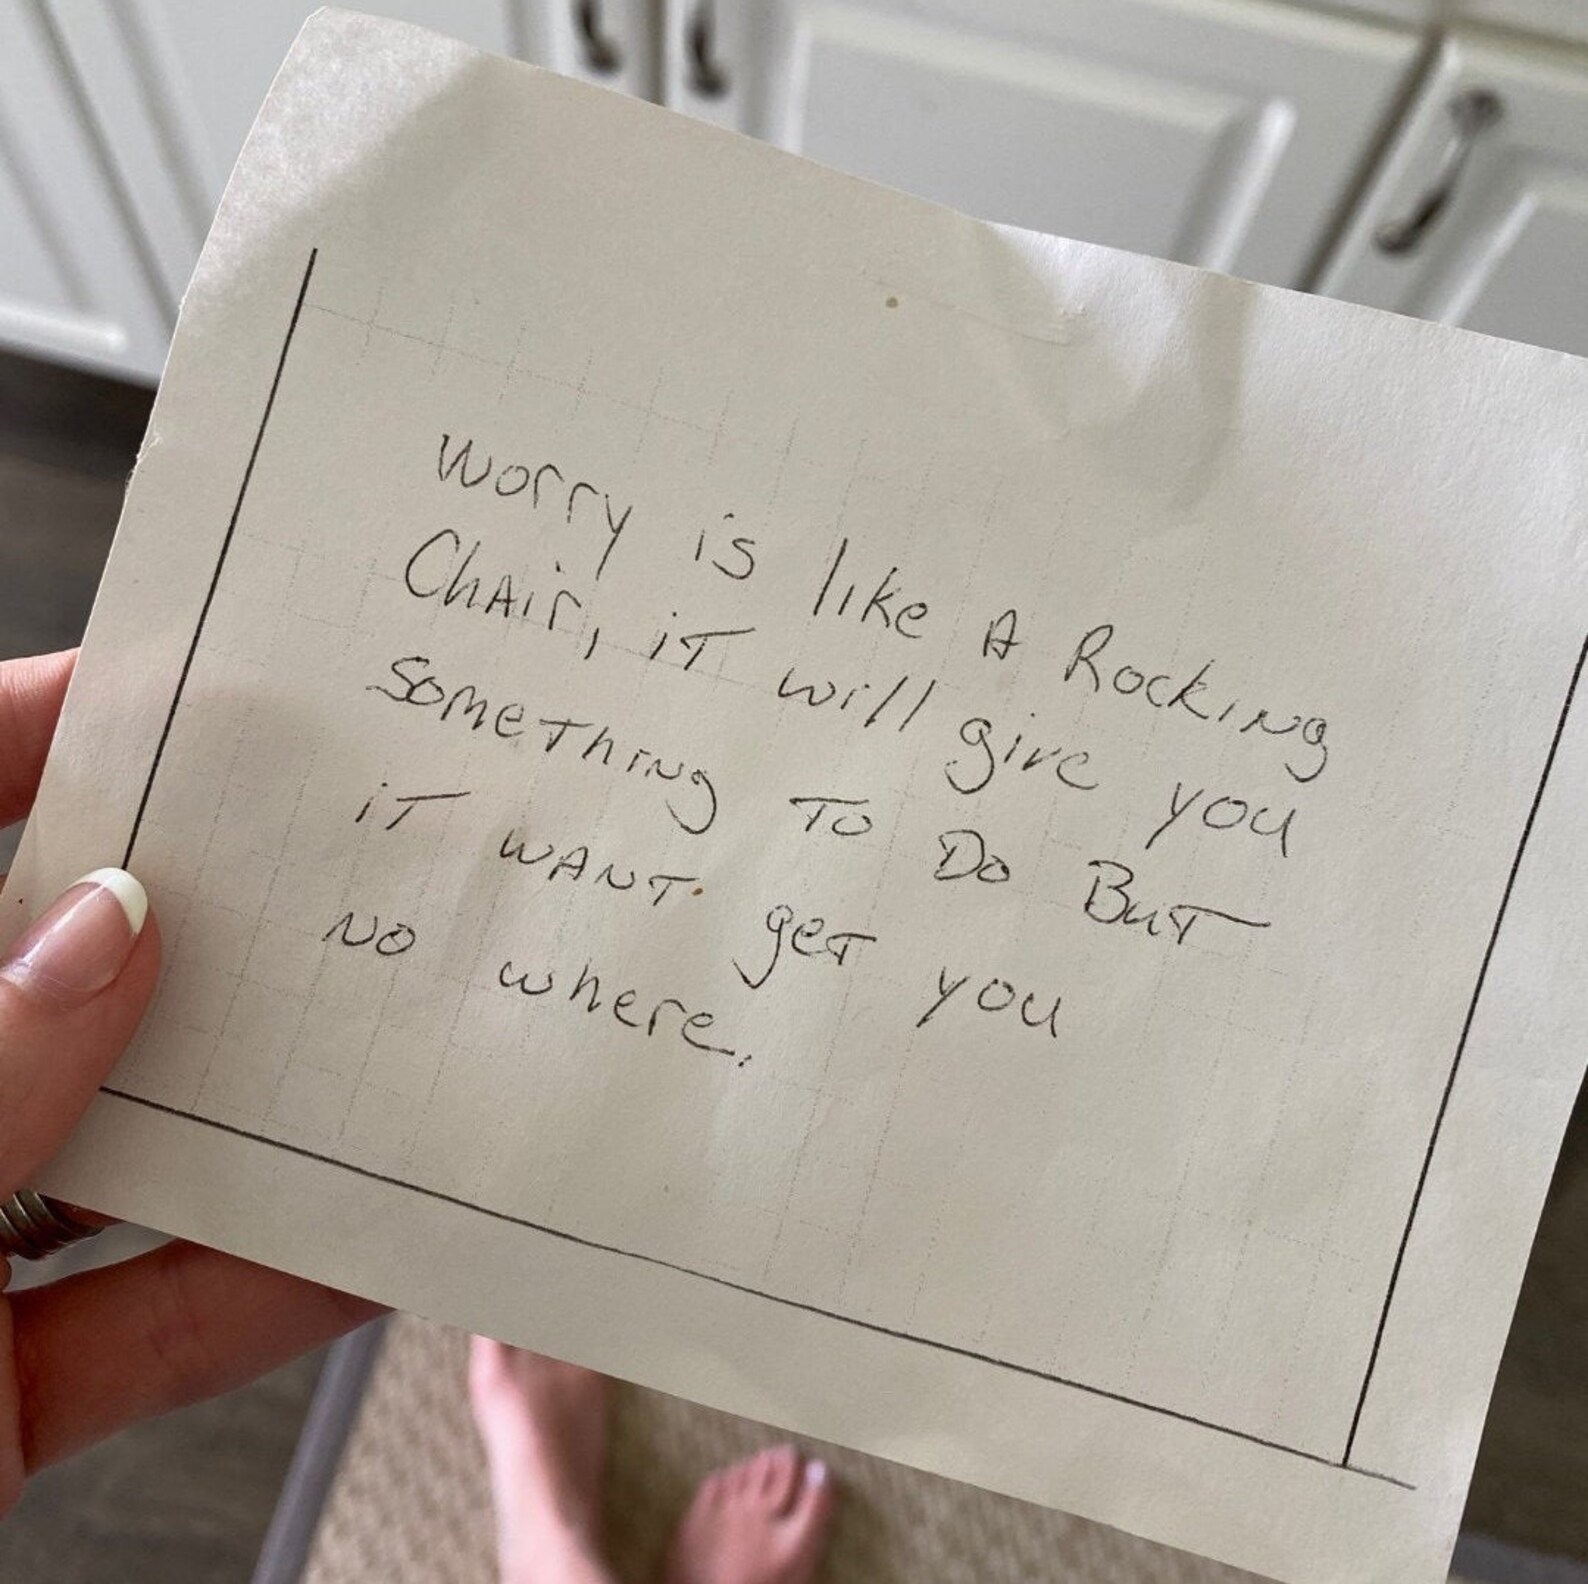 Worry is like A Rocking
ChAir, iT will give you
someThiNg To Do BuT
iT wANT geT you
No where.